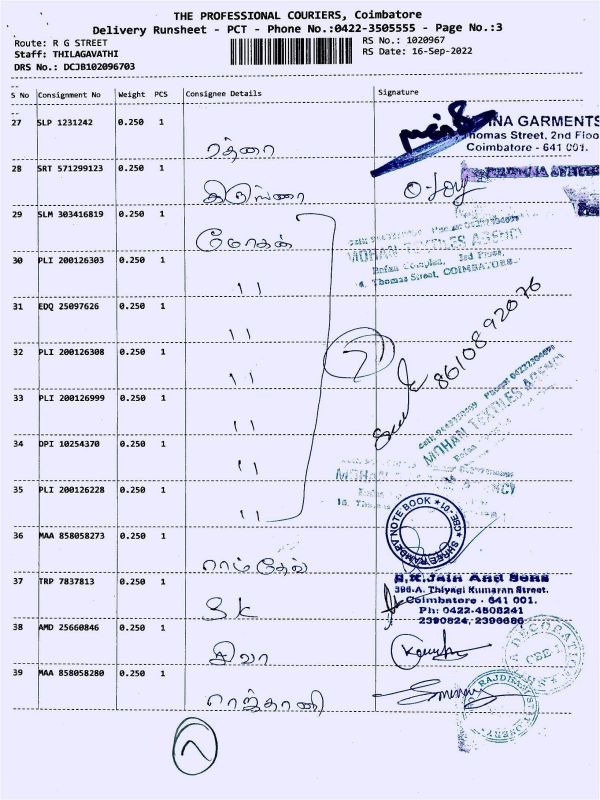 THE PROFESSIONAL COURIERS, Coimbatore
Delivery Runsheet - PCT - Phone No.:0422-3505555 - Page No.:3
Route: R G STREET
RS No.: 1020967
Staff: THILAGAVATHI
RS Date: 16-Sep-2022
DRS No.: DCJB102096703
S No Consignment No Weight PCS Consignee Details Signature
27 SLP 1231242 0.250 1
GARMENTS
Thomas Street, 2nd Floo
Coimbatore - 641 001.
28 SRT 571299123 0.250 1
O-Joy
29 SLM 303416819 0.250 1 மோகன்
MOHAN TEXTILES AGENCY
Thomas Street, COIMBATORE-
30 PLI 200126303 0.250 1 ''
31 EDQ 25097626 0.250 1 ''
8610892076
32 PLI 200126308 0.250 1 ''
7
33 PLI 200126999 0.250 1 ''
MOHAN TEXTILES AGENCY
34 DPI 10254370 0.250 1 ''
35 PLI 200126228 0.250 1 ''
SHREE RAMDEV NOTE BOOK * CBE-01 *
36 MAA 858058273 0.250 1 ராம்தேவ்
37 TRP 7837813 0.250 1 SK
S.K.Jain And Sons
396-A. Thiyagi Kumaran Street.
Coimbatore - 641 001.
Ph: 0422-4508241
2390824, 2396686
38 AMD 25660846 0.250 1 சிவா
39 MAA 858058280 0.250 1
7